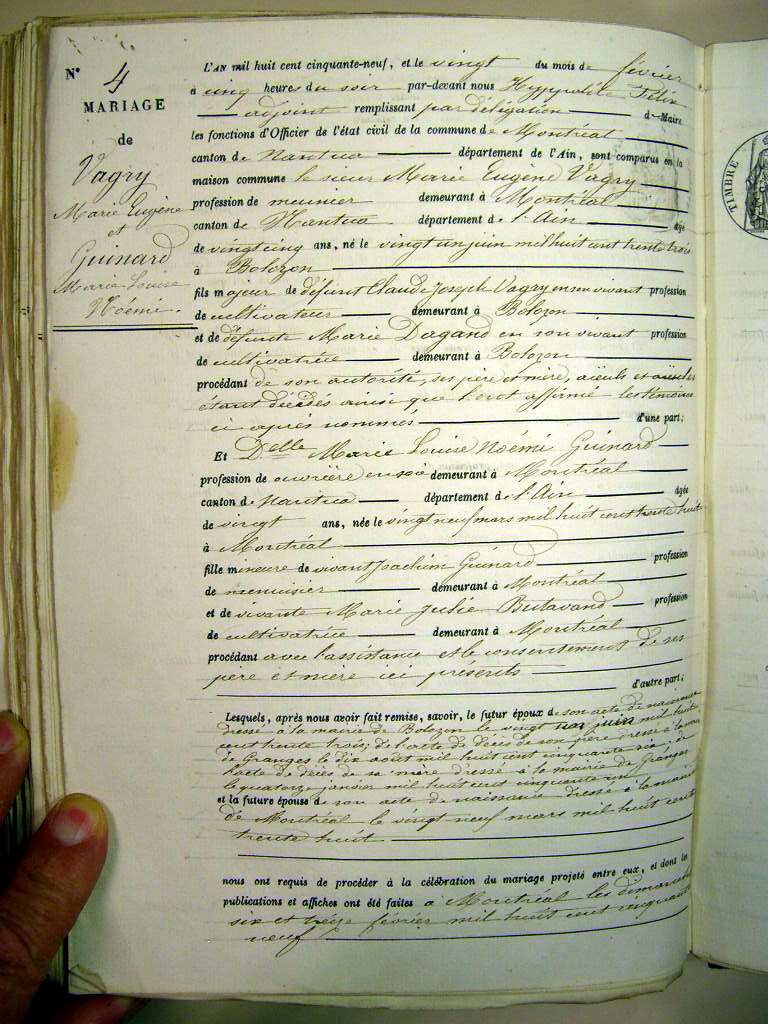 N° 4
MARIAGE
de
Vagry
Marie Eugène
et
Guinard
Marie Louise
Noémi.
L'AN mil huit cent cinquante-neuf, et le vingt du mois de février
à cinq heures du soir par-devant nous Hyppolite Félix
adjoint remplissant par délégation de Maire
les fonctions d'Officier de l'état civil de la commune de Montréal
canton de Nantua département de l'Ain, sont comparus en la
maison commune le sieur Marie Eugène Vagry
profession de meunier demeurant à Montréal
canton de Nantua département de l'Ain âgé
de vingt cinq ans, né le vingt un juin mil huit cent trente trois
à Bolozon
fils majeur de défunt Claude Joseph Vagry en son vivant profession
de cultivateur demeurant à Bolozon
et de défunte Marie Dagand en son vivant profession
de cultivatrice demeurant à Bolozon
procédant de son autorité, ses père et mère, aïeuls et aïeules
étant décédés ainsi que l'ont affirmé les témoins
ci après nommés d'une part;
Et Delle Marie Louise Noémi Guinard
profession de ouvrière en soie demeurant à Montréal
canton de Nantua département de l'Ain âgée
de vingt ans, née le vingt neuf mars mil huit cent trente huit
à Montréal
fille mineure de vivant Joachim Guinard profession
de menuisier demeurant à Montréal
et de vivante Marie Julie Butavand profession
de cultivatrice demeurant à Montréal
procédant avec l'assistance et le consentement de ses
père et mère ici présents d'autre part;
Lesquels, après nous avoir fait remise, savoir, le futur époux de son acte de naissance
dressé à la mairie de Bolozon le vingt un juin mil huit
cent trente trois; de l'acte de décès de son père dressé à la mairie
de Granges le dix août mil huit cent cinquante six, de
l'acte de décès de sa mère dressé à la mairie de Granges
le quatorze janvier mil huit cent cinquante un
et la future épouse de son acte de naissance dressé à la mairie
de Montréal le vingt neuf mars mil huit cent
trente huit
nous ont requis de procéder à la célébration du mariage projeté entre eux, et dont les
publications et affiches ont été faites à Montréal les dimanches
six et treize février mil huit cent cinquante
neuf
TIMBRE